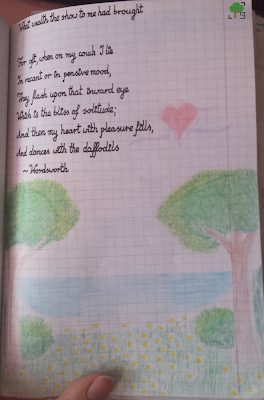 What wealth the show to me had brought
For oft, when on my couch I lie
In vacant or in pensive mood,
They flash upon that inward eye
Wich is the bliss of solitude;
And then my heart with pleasure fills,
And dances with the daffodils
~ Wordsworth